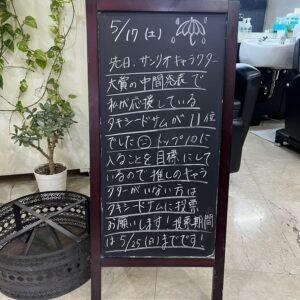 5/17(土)
先日、サンリオキャラクター
大賞の中間発表で
私が応援している
タキシードサムが11位
でした トップ10に
入ることを目標にして
いるので推しのキャラ
クターがいない方は
タキシードサムに投票
お願いします!投票期間
は5/25(日)までです!